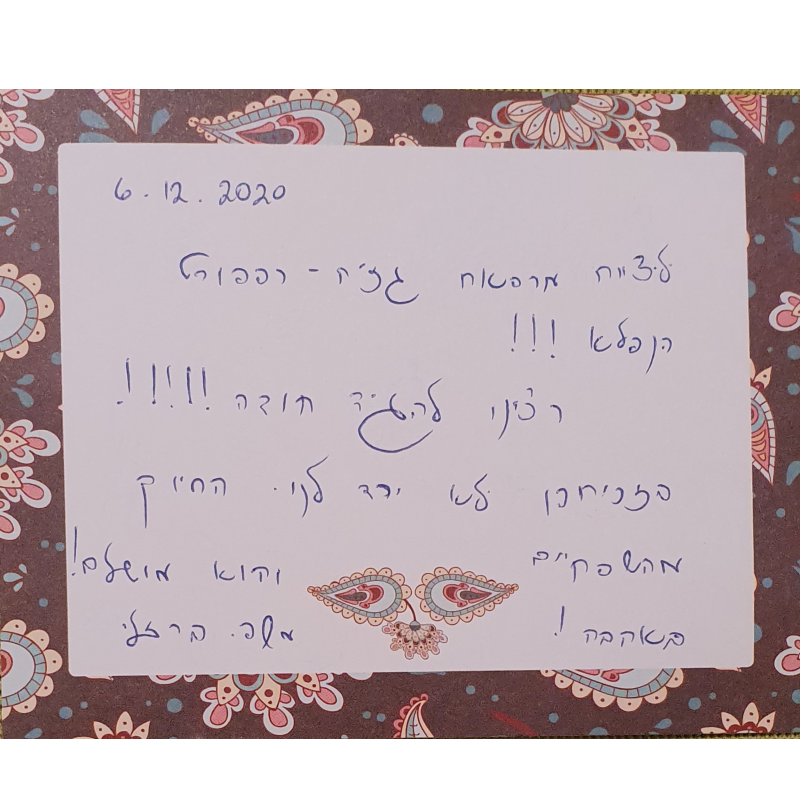 6.12.2020
לצוות מרפאת גזית - רפפורט
הנפלא !!!
רצינו להגיד תודה !!!!!!
בזכותכן לא ירד לנו החיוך
מהשפתיים והוא מושלם!
באהבה! משפ. ברזלי